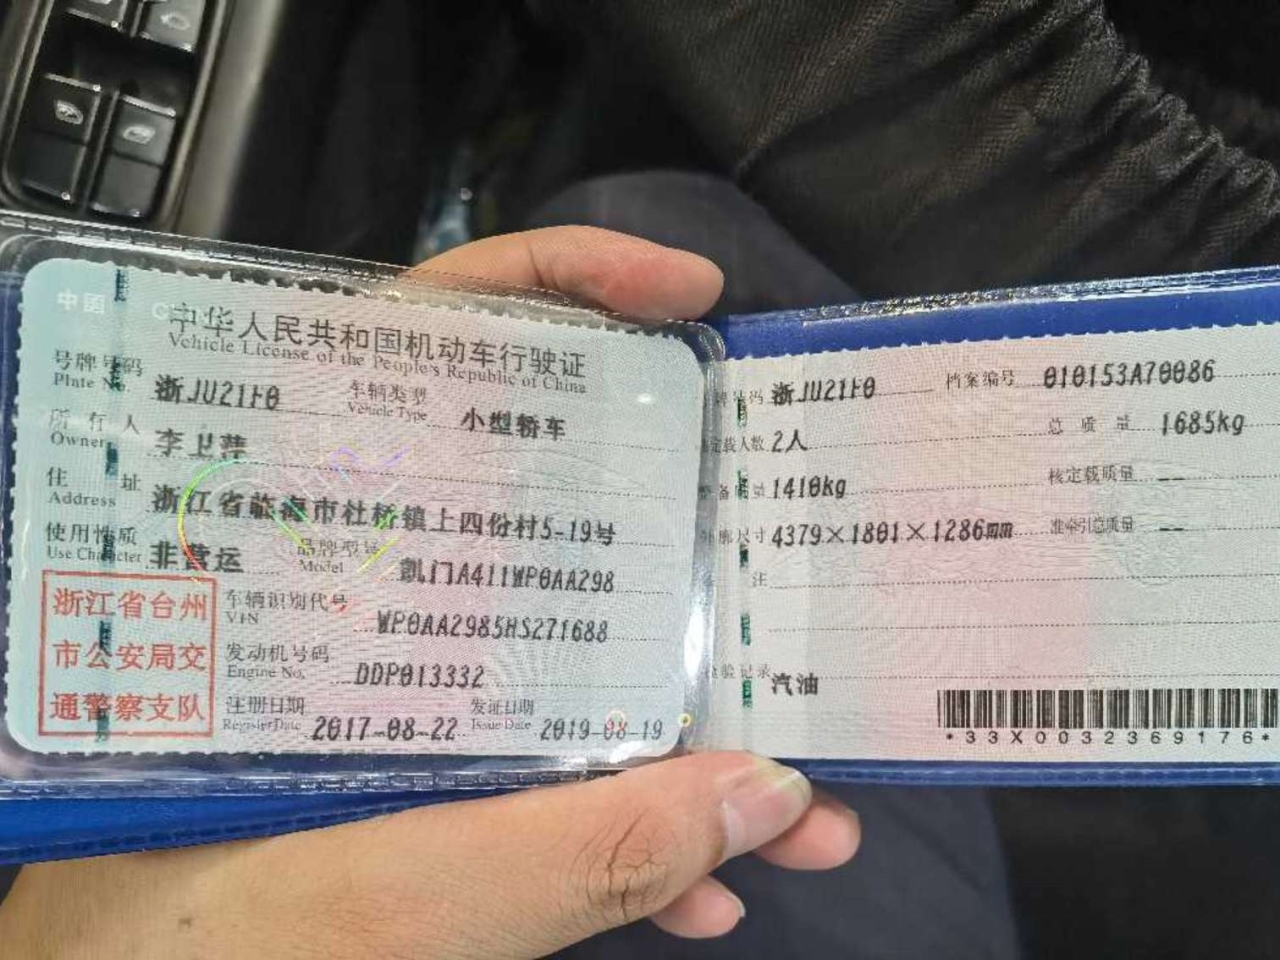 中国
中华人民共和国机动车行驶证
Vehicle License of the People's Republic of China
号牌号码 浙JU21F0 车辆类型 小型轿车
Plate No. Vehicle Type
所有人 李卫萍
Owner
住址 浙江省临海市杜桥镇上四份村5-19号
Address
使用性质 非营运 品牌型号 凯门A411WP0AA298
Use Character Model
浙江省台州
市公安局交
通警察支队
车辆识别代号 WP0AA2985HS271688
VIN
发动机号码 DDP013332
Engine No.
注册日期 2017-08-22 发证日期 2019-08-19
Register Date Issue Date
号码 浙JU21F0 档案编号 010153A70086
定载人数 2人 总质量 1685kg
备质量 1410kg 核定载质量 --
廓尺寸 4379×1801×1286mm 准牵引总质量 --
注
验记录 汽油
*33X0032369176*